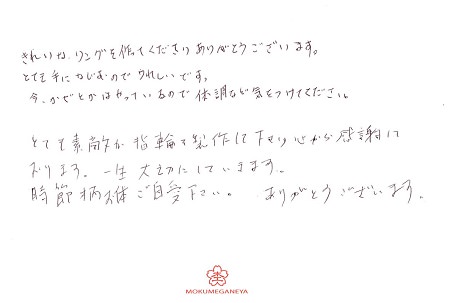 きれいな リングを作ってくださり ありがとうございます。
とても手になじむので うれしいです。
今、かぜとかはやっているので 体調など気をつけてください。
とても素敵な指輪を製作して下さり心から感謝して
おります。一生大切にしていきます。
時節柄お体ご自愛下さい。 ありがとうございます。
MOKUMEGANEYA